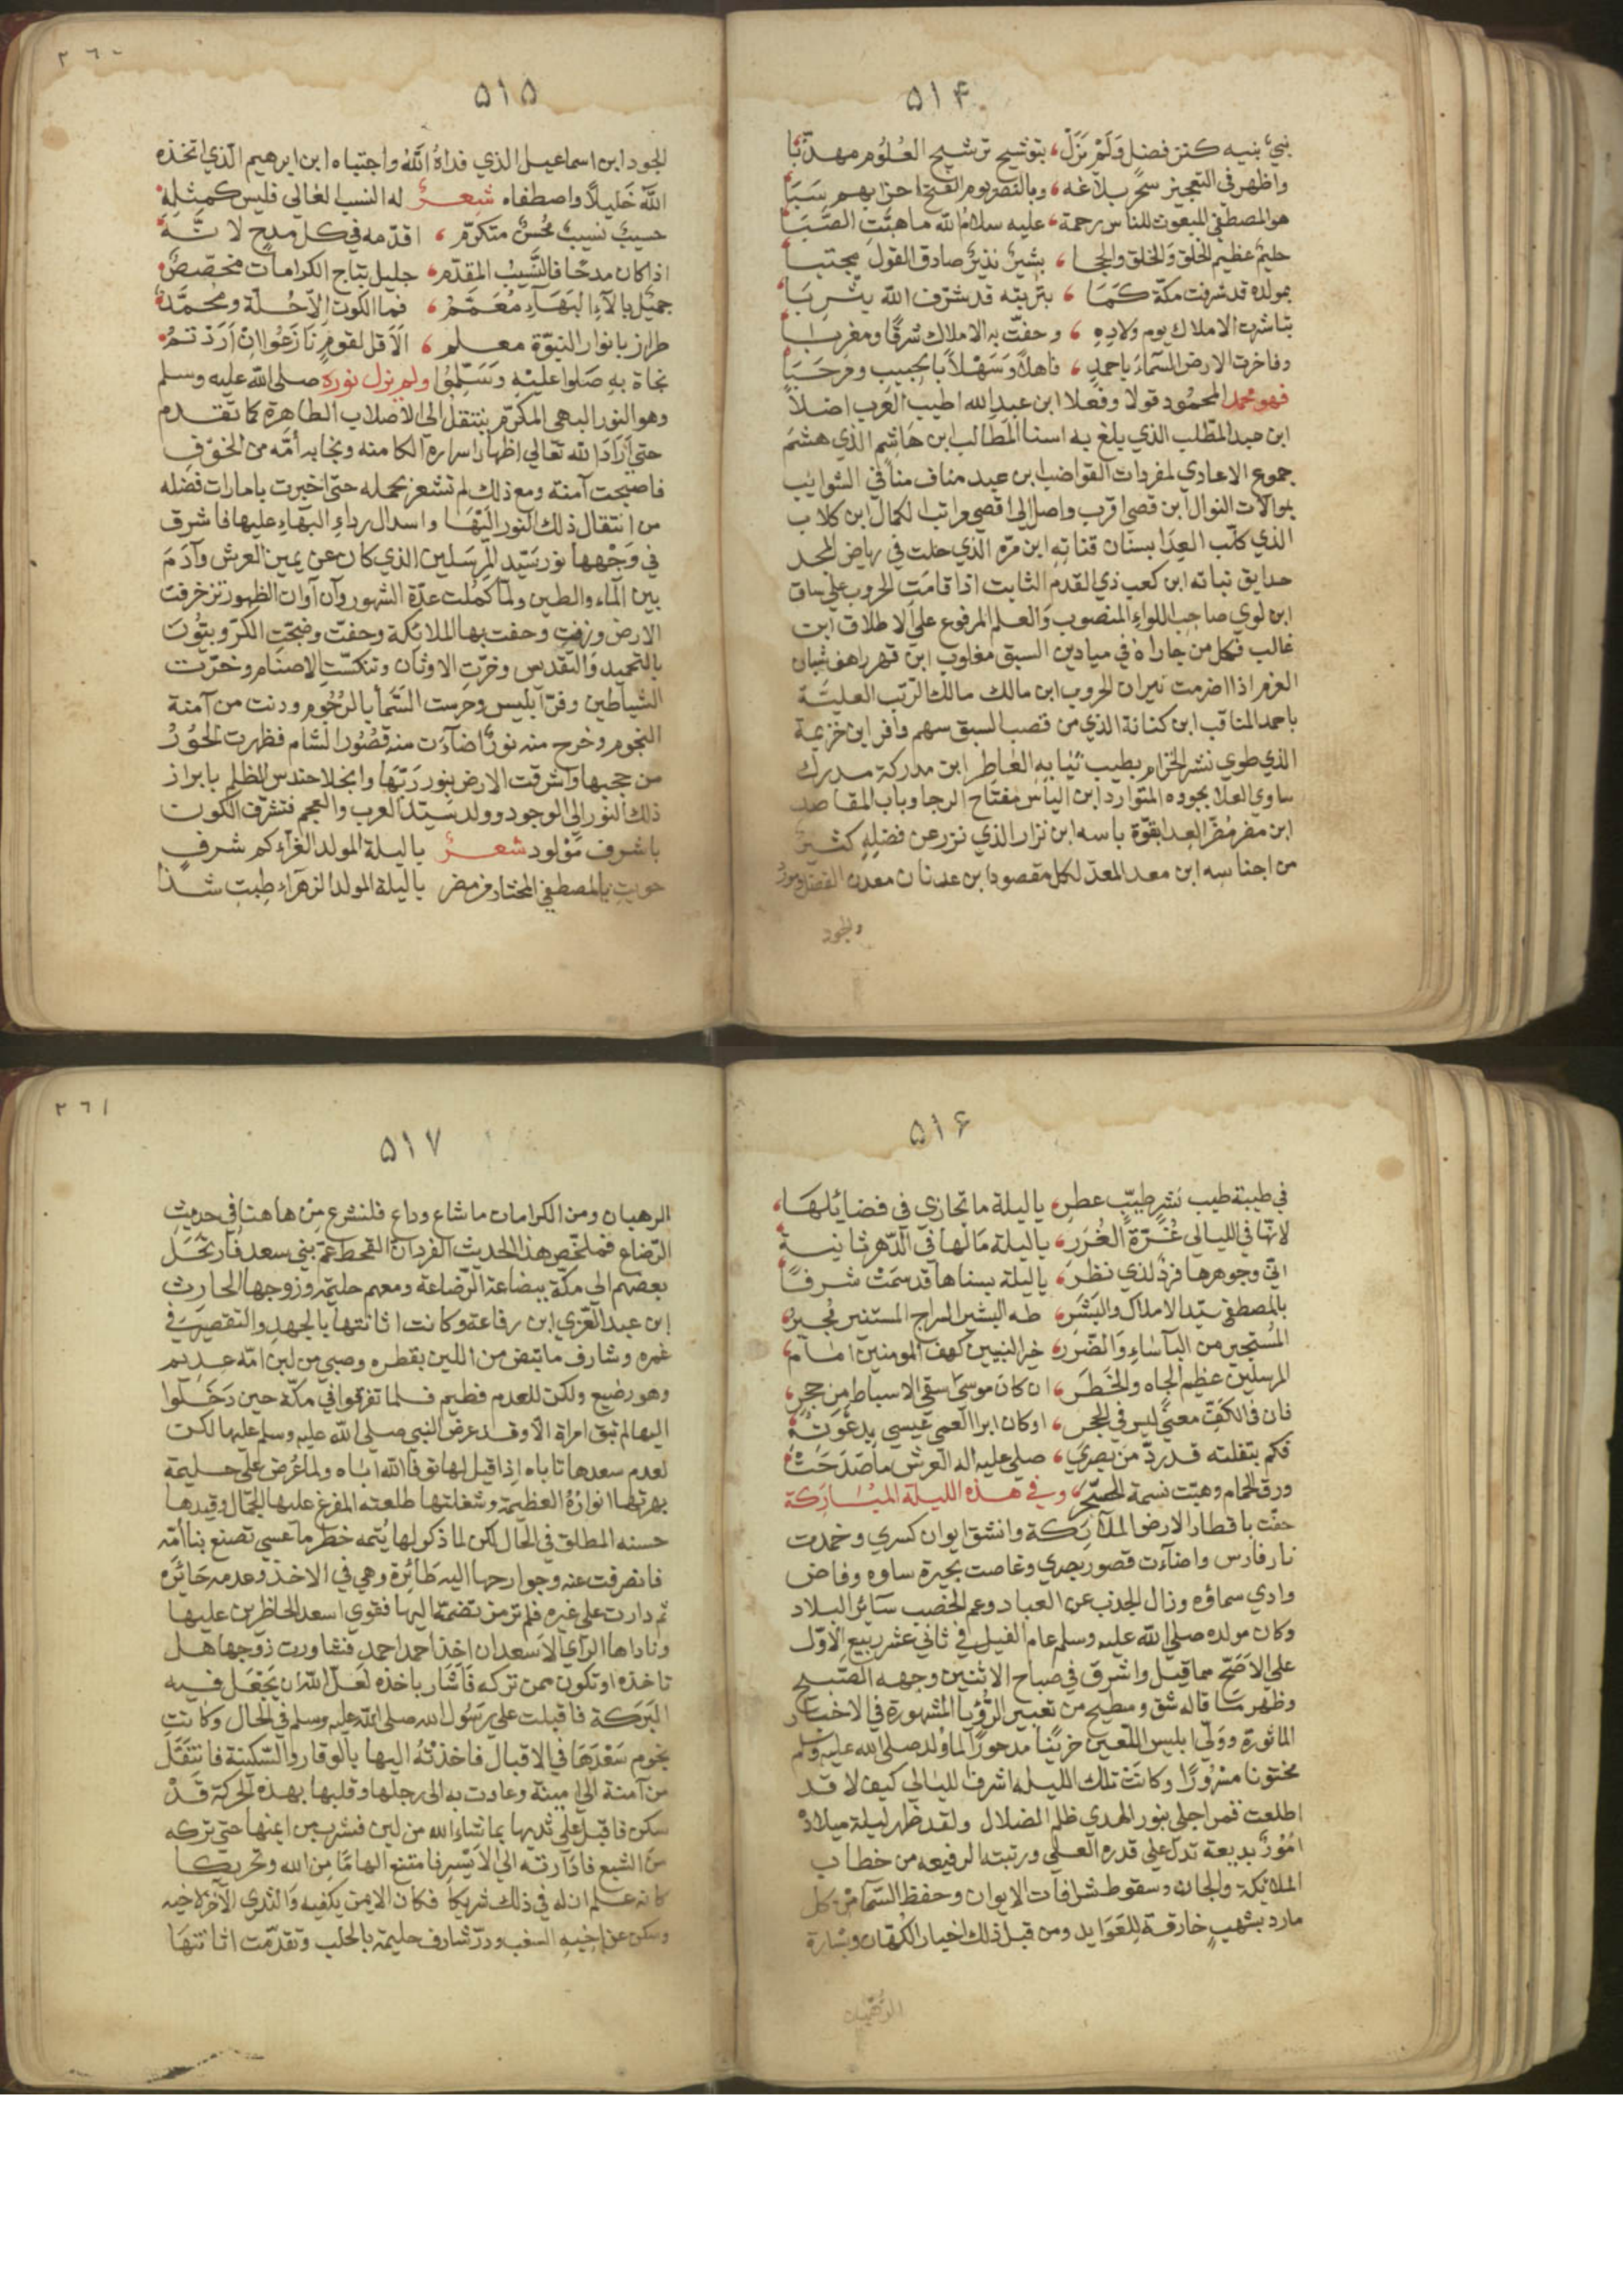 ٥١۴
نبيّ بنيه كنز فضل وَلَمْ نزَلْ، بتوشيح ترشيح العُلُوم مهذّبا
واظهر في التعجيز سحر بلاغه، وبالنصر يوم الفتح احزابهم سَبَا
هو المصطفي المبعوث للناس رحمة، عليه سلام الله ما هبّت الصَّبَا
حليم عظيم الخلق وَالخلق والحجا، بشير نذير صادق القول مجتبا
بمولده قد شرفت مكّة كَمَا، بتربته قد شرّف الله يثربَا
تباشرت الاملاك يوم ولاده، وحفّت به الاملاك شرقًا ومغربا
وفاخرت الارض السَّماءَ باحمد، فاهلًا وَسَهْلًا بالحبيب ومَرحَبَا
فهو محمد المحمُود قولا وفعلا ابن عبد الله اطيب العرب اصلًا
ابن عبد المطّلب الذي بلغ به اسنا المَطَالب ابن هَاشِم الذي هشمَ
جموع الاعادي لمفردات القواضب ابن عبد مناف منافي الشوايب
بموالات النوال ابن قصي اقرب واصل الى اقصي مراتب الكمال ابن كلاب
الذي كلّب العِدَا بسنَان قناتِهِ ابن مرّه الّذي حلت في رياض المجد
حدايق نباته ابن كعب ذي القدم الثابت اذا قامَت الحروب علي ساق
ابن لوي صاحب اللواء المنصوب وَالعلم المرفوع علي الاطلاق ابن
غالب فكل من جاراه في ميادين السبق مغلوب ابن فهر راهف شبان
العزم اذا اضرمت نيران الحروب ابن مالك مالك الرّتب العليَّة
باحمد المناقب ابن كنانة الذي من قصب السبق سهم وافر ابن خزيمة
الذي طوي نشر الخزام بطيب ثيَابِه العَاطِر ابن مدركة مدرك
ساوي العلا بجوده المتوارد ابن الياس مفتاح الرجا وباب المقاصد
ابن مضر مُضرّ العدا بقوّة باسه ابن نزار الذي نزر عن فضلِهِ كثير
من اجناسه ابن معد المعدّ لكل مقصود ابن عدنان معدن الفضل ومورد
والجود
٢٦٠
٥١٥
الجود ابن اسماعيل الذي فداهُ اللّهُ واجتباه ابن ابرهيم الّذي اتخذه
اللّهَ خَليلًا واصطفاه شعر له النسب الغالي فليس كمثلِه
حسيبٌ نسيبٌ مُحسنٌ متكرّم، اقدّمه في كل مديح لانّهُ
اذا كان مدحًا فالنَّسِيبُ المقدّم، جليل بتاج الكرامات مخصّصٌ
جميل بالآءِ البَهَآءِ مُعَمَّمْ، فما الكون الاّ حُلّة ومحمدٌ
طراز بانوار النبوّة معلم، اَلاَ قل لقوم نازعُوا ان اَرَدْتُم
نجاة به صَلوا عليْهِ وَسَلِّمُوا ولم يزل نوره صلى الله عليه وسلم
وهو النور البهي المكرّم ينتقل الى الاصلاب الطاهرة كما تقدم
حتي اَرَادَ الله تعالي اظهار اسراره الكامنه ونجا به اُمّه من الخوف
فاصبحت آمنة ومع ذلك لم تشعر بحمله حتي اخبرت بامارات فضله
من انتقال ذلك النور اليْهَا واسدال رداءِ البهآءِ عليها فاشرق
في وَجْهها نور سَيّد المرسَلين الذي كان عن يمين العرش وآدَمَ
بين المآء والطين ولمّا كمُلت عدّة الشهور وآن آوان الظهور تزخرفت
الارض وزفت وحفت بها الملائكة وحفّت وضجّت الكرّوبيّونَ
بالتحميد وَالتقديس وخرّت الاوثان وتنكسّت الاصنام وخرّت
الشياطين وفرّ ابليس وحرست السَّمآ بالرُجُوم ودنت من آمنة
النجوم وخرج منه نورٌ اضآءت منه قصُورُ الشام فظهرت الحُورُ
من حجبها واشرقت الارض بنور ربّها وانجلا حندس الظلم بابراز
ذلك النور الى الوجود وولد سيّد العرب والعجم فتشرّف الكون
باشرف مَوْلود شعر ياليلة المولد الغرّآءِ كم شرفٍ
حويتِ بالمصطفي المختار من مضر ياليلة المولد الزهرآءِ طِبتِ شذا
٥١۶
في طيبة طيب نشرٍ طيّبٍ عطرِ، ياليلة ما تجازي في فضائلهَا،
لانّها في الليالي غُرّة الغُرَرِ، ياليلة مَا لها في الدّهر ثانية
انّي وجوهرها فردٌ لذي نظرِ، ياليلة بسناها قد سَمَتْ شرفًا
بالمصطفي سيّد الاملاك والبَشَرِ، طه البشير السراج المستنير مُجيرُ
المُستجير من البآساءِ وَالضّرَرِ، خير النبيين كهف المومنين امَام،
المرسلين عظيم الجاه والخَطَرِ، ان كان موسي سقي الاسباط من حجرٍ،
فان في الكفّ معنيً ليس في الحجرِ، اوكان ابرا العمي عيسي بدعوَتِهِ
فكم بتفلته قد ردّ من بصري، صلي عليه اله العرش ما صَدَحَتْ
ورق الحمام وهبّت نسمة السحَرِ، وفي هذه الليلة المبَاركة
حفّت باقطار الارض الملآئكة وانشق ايوان كسري وخمدت
نار فارس واضآءت قصور بصري وغاصت بحيرة ساوه وفاض
وادي سماؤه وزال الجدب عن العباد وعم الخصب سآئر البلاد
وكان مولده صلي الله عليه وسلم عام الفيل في ثاني عشر ربيع الاوّل
علي الاصَحّ مما قيل واشرق في صباح الاثنين وجهه الصّبيح
وظهر مَا قاله شق وسطيح من تعبير الرّؤيا المشهورة في الاخبار
الماثورة وولّي ابليس اللّعين حزينًا مدحورًا لما وُلد صلي الله عليه وسلم
مختونا مسْرُورًا وكانت تلك الليله اشرف الليالي كيف لا قد
اطلعت قمر اجلي بنور الهدي ظلم الضلال ولقد ظهر ليلة ميلاده
امُورٌ بديعة تدل علي قدره العلي ورتبته الرفيعه من خطاب
الملائيكة والجان وسقوط شرافات الايوان وحفظ السّمآ من كل
مارد بشهبٍ خارقة للعَوَايد ومن قبل ذلك اخبار الكهّان وبشارة
الرُّهبان
٢٦١
٥١٧
الرهبان ومن الكرامات ما شاع وذاع فلنشرع مِن هاهنا في حديث
الرّضاع فملخّص هذا الحديث الفرد انّ القحط عمّ بني سعد فارتحَلَ
بعضهم الى مكّة ببضاعة الرّضاعة ومعهم حليمة وزوجها الحارث
ابن عبد العُزّي ابن رفاعة وكانت اثانتها بالجهد والتقصير في
غمره وشارف ما تبض من اللبن بقطره وصبي من لبن امّه عديم
وهو رضيع ولكن للعدم فطيم فلما تفرقوا في مكّة حين دَخَلُوا
اليها لم تبق امراة الاّ وقد عرض النبي صلي الله عليه وسلم عليها لكن
لعدم سعدها تاباه اذا قيل لها توفّا الله اباه ولما عُرض علي حليمة
بهرتها انوارُهُ العظيمة وشغلتها طلعته المفرغ عليها الجمال وقيدها
حسنه المطلق في الحال لكن لما ذكر لها يُتمه خطر ما عسي تصنع بنا امّه
فانصرفت عنه وجوارحها اليه طآئرة وهي في الاخذ وعدمه حَائرَه
ثم دارت علي غيره فلم تر من تضمّه اليها فقوي اسعد الحاظرين عليها
وناداها الرآي الاسعد ان اخذ احمد احمد فشاورت زوجها هل
تاخذه اوتكون ممن تركه فاَشار باخذه لعلّ الله ان يَجْعَل فيه
البَرَكة فاقبلت علي رسُول الله صلي الله عليه وسلم في الحال وكانت
نجوم سَعْدِهَا في الاقبال فاخذتْهُ اليها بالوقار والسّكينة فانتقَل
من آمنة الى امينة وعادت به الى رحلها وقلبها بهذه الحركة قَدْ
سكن فاقبل علي ثديها بما شاءَ الله من لبن فشرب من ايمنها حتي تركه
من الشبع فادآرته الى الايْسر فامتنع الهامًا مِن الله وتحريكا
كانه علم ان له في ذلك شريكًا فكان الايمن يكفيه والثدي الآخر لاخيه
وسكن عن اخيهِ السغب ودرّ شارف حليمة بالحلب وتقدّمت اثانتهَا